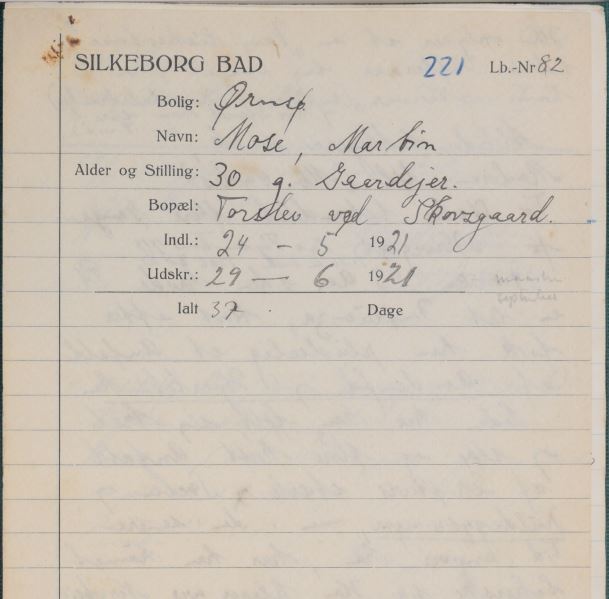 SILKEBORG BAD 221 Lb.-Nr 82
Bolig: Ørnsø
Navn: Mose, Martin
Alder og Stilling: 30 g. Gaardejer.
Bopæl: Torslev ved Skovsgaard.
Indl.: 24 – 5 1921
Udskr.: 29 — 6 1921
Ialt 37 Dage